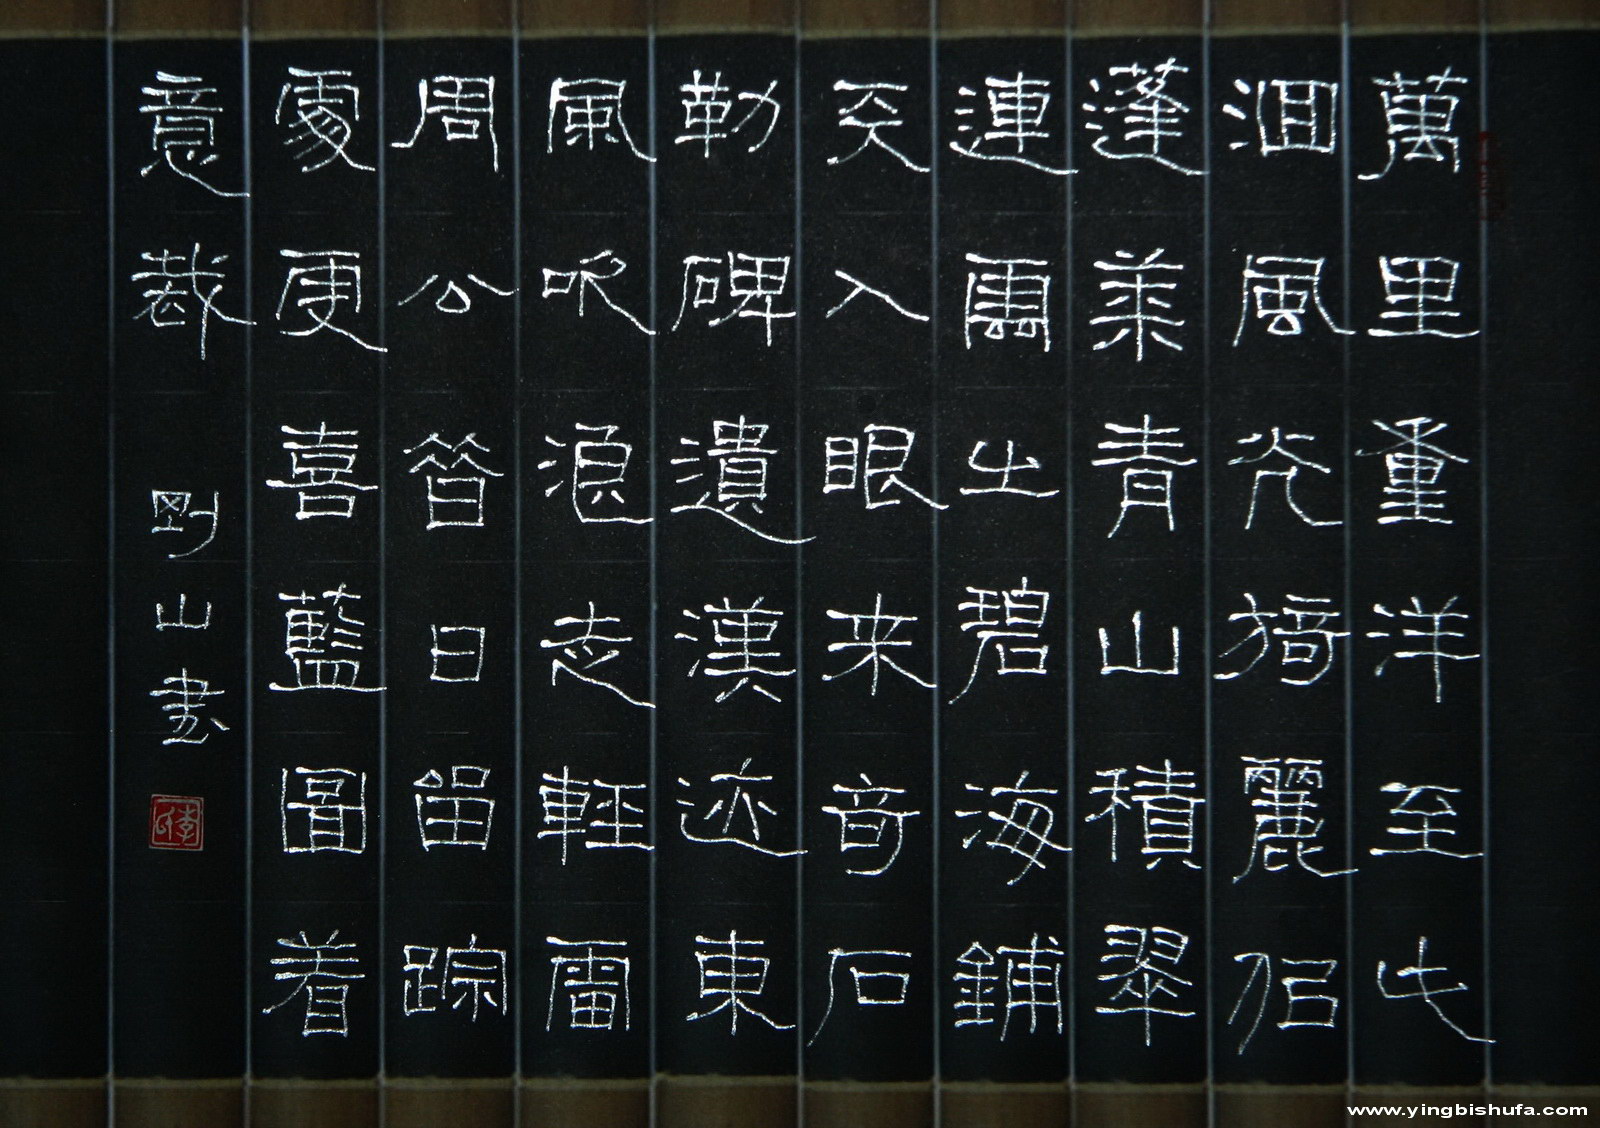 萬里重洋至此
洄風光猗麗佀
蓬萊青山積翠
連雲出碧海鋪
天入眼来奇石
勒碑遺漢迹東
風吹浪走輕雷
周公昔日留踪
處更喜藍圖着
意裁 剛山書
www.yingbishufa.com